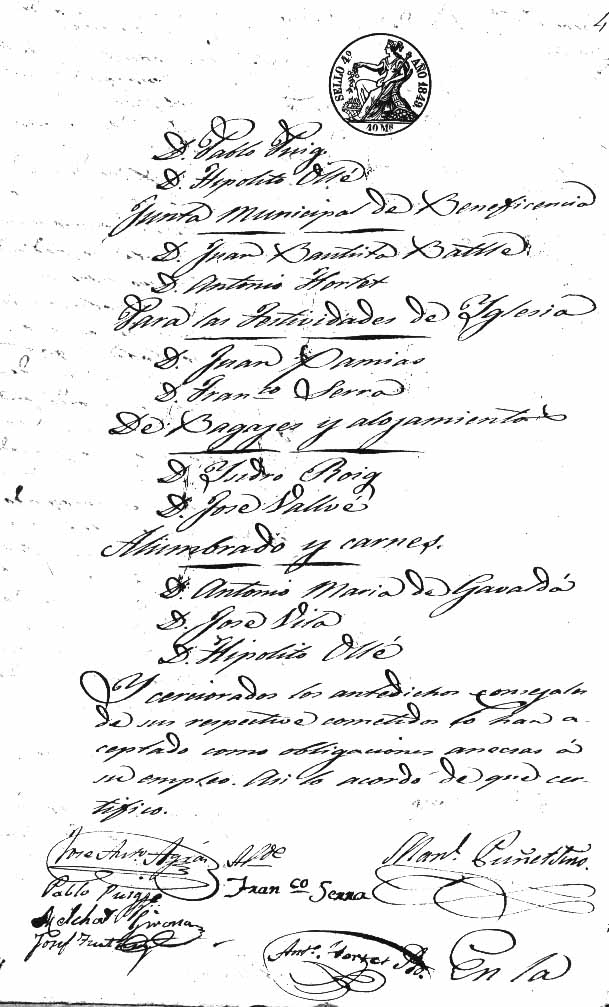 4
SELLO 4º AÑO 1849
40 Ms
D. Pablo Puig.
D. Hipolito Ollé
Junta Municipal de Beneficencia
D. Juan Bautista Batlle
D. Antonio Hortet
Para las Festividades de Yglesia
D. Juan Pamias
D. Franco Serra
De Bagages y alojamientos
D. Ysidro Roig
D. Jose Vallvé
Alumbrado y carnes.
D. Antonio Maria de Gavaldá
D. Jose Vila
D. Hipolito Ollé
Y cerciorados los antedichos consejales
de sus respective cometidos lo han a-
ceptado como obligaciones anecsas á
su empleo. Asi lo acordó de que cer-
tifico.
Jose Anto. Alde
Manl.
Pablo Puig Franco Serra
Melchor Girona
Josef
Anto. Hortet
En la